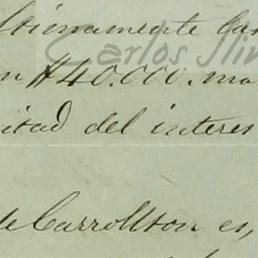 ltimamente
Carlos
$40.000. ma
itad del interes
de Carrollton es,